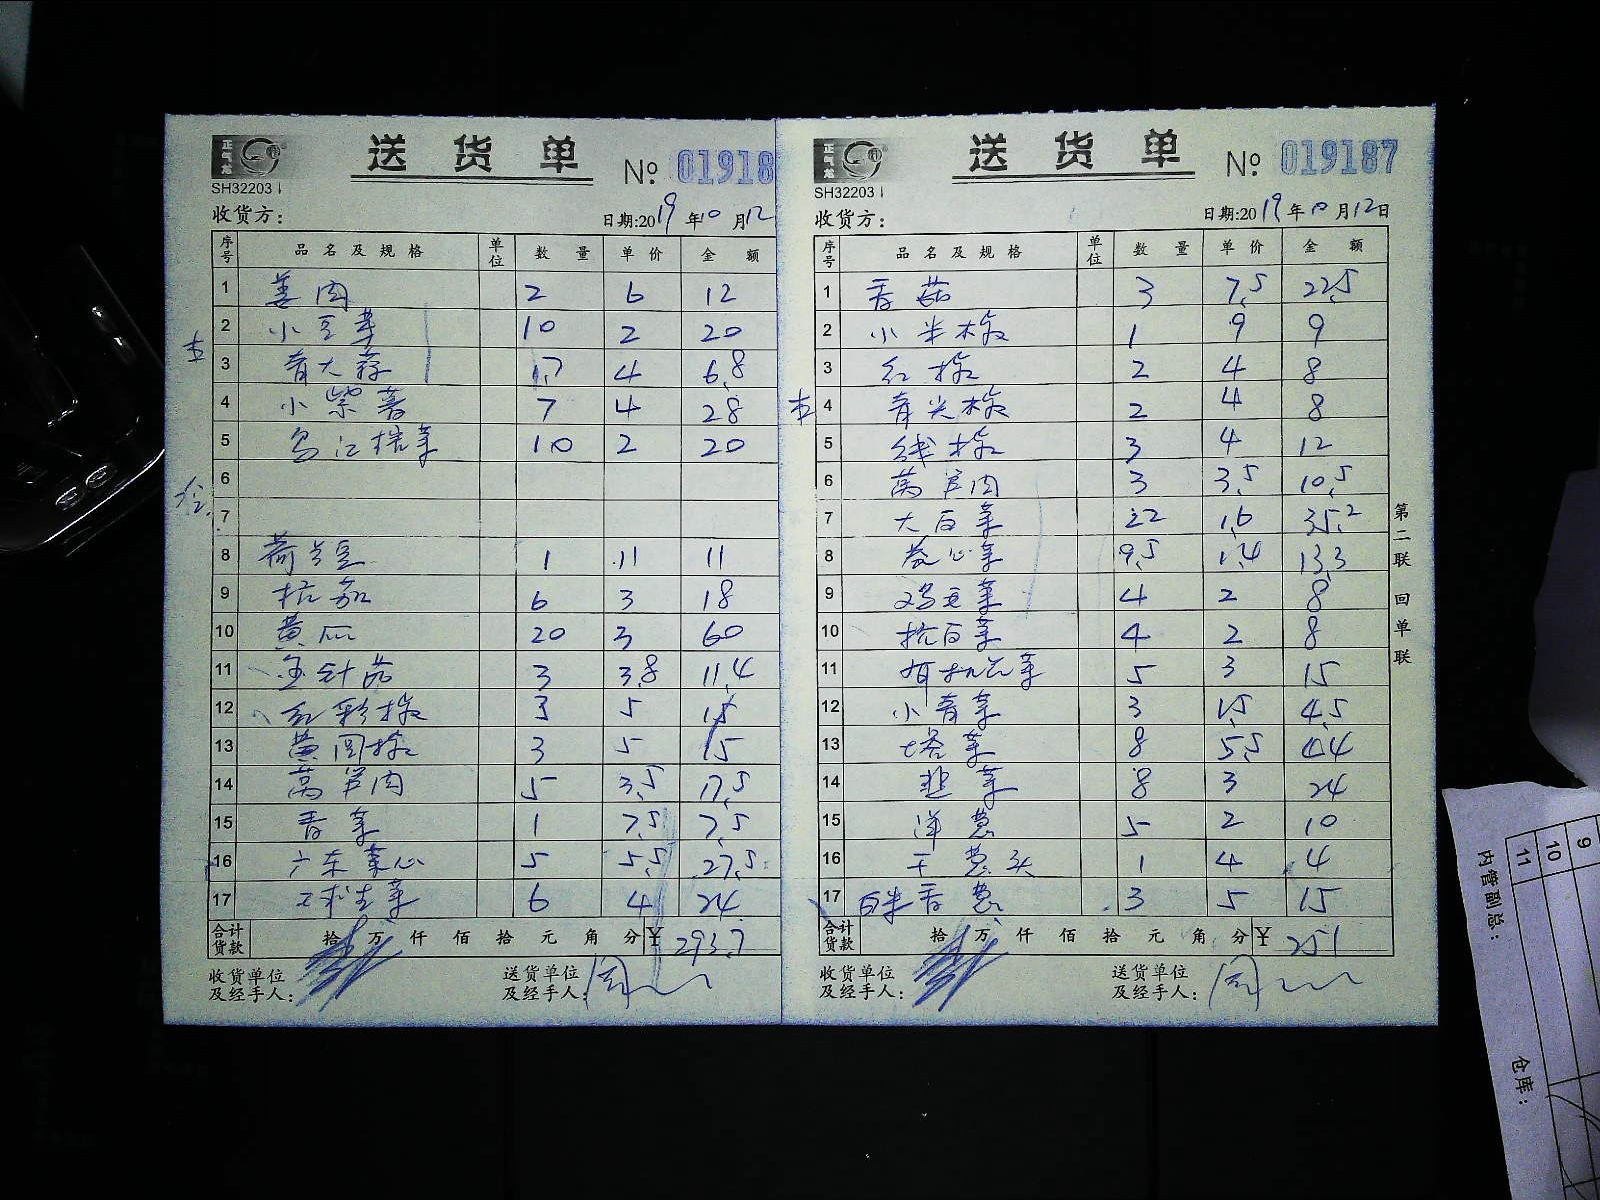 正气龙
SH32203
送 货 单
№ 01918
收货方：
日期:2019年10月12
序号 品名及规格 单位 数量 单价 金额
1 姜肉 2 6 12
2 小豆芽 10 2 20
3 青大蒜 1.7 4 6.8
4 小紫薯 7 4 28
5 乌江榨菜 10 2 20
6
7
8 荷兰豆 1 11 11
9 杭茄 6 3 18
10 黄瓜 20 3 60
11 金针菇 3 3.8 11.4
12 红彩椒 3 5 15
13 黄圆椒 3 5 15
14 莴笋肉 5 3.5 17.5
15 香菜 1 7.5 7.5
16 广东菜心 5 5.5 27.5
17 球生菜 6 4 24
合计货款 拾 万 仟 佰 拾 元 角 分 ¥ 293.7
收货单位及经手人：
送货单位及经手人：周
正气龙
SH32203
送 货 单
№ 019187
收货方：
日期:2019年10月12日
序号 品名及规格 单位 数量 单价 金额
1 香菇 3 7.5 22.5
2 小米椒 1 9 9
3 红椒 2 4 8
4 青尖椒 2 4 8
5 线椒 3 4 12
6 莴笋肉 3 3.5 10.5
7 大白菜 22 1.6 35.2
8 卷心菜 9.5 1.4 13.3
9 鸡毛菜 4 2 8
10 杭白菜 4 2 8
11 有机花菜 5 3 15
12 小青菜 3 1.5 4.5
13 塔菜 8 5.5 44
14 韭菜 8 3 24
15 洋葱 5 2 10
16 干葱头 1 4 4
17 香葱 3 5 15
合计货款 拾 万 仟 佰 拾 元 角 分 ¥ 251
收货单位及经手人：
送货单位及经手人：周
第二联 回单联
9
10
11
内管副总：
仓库：